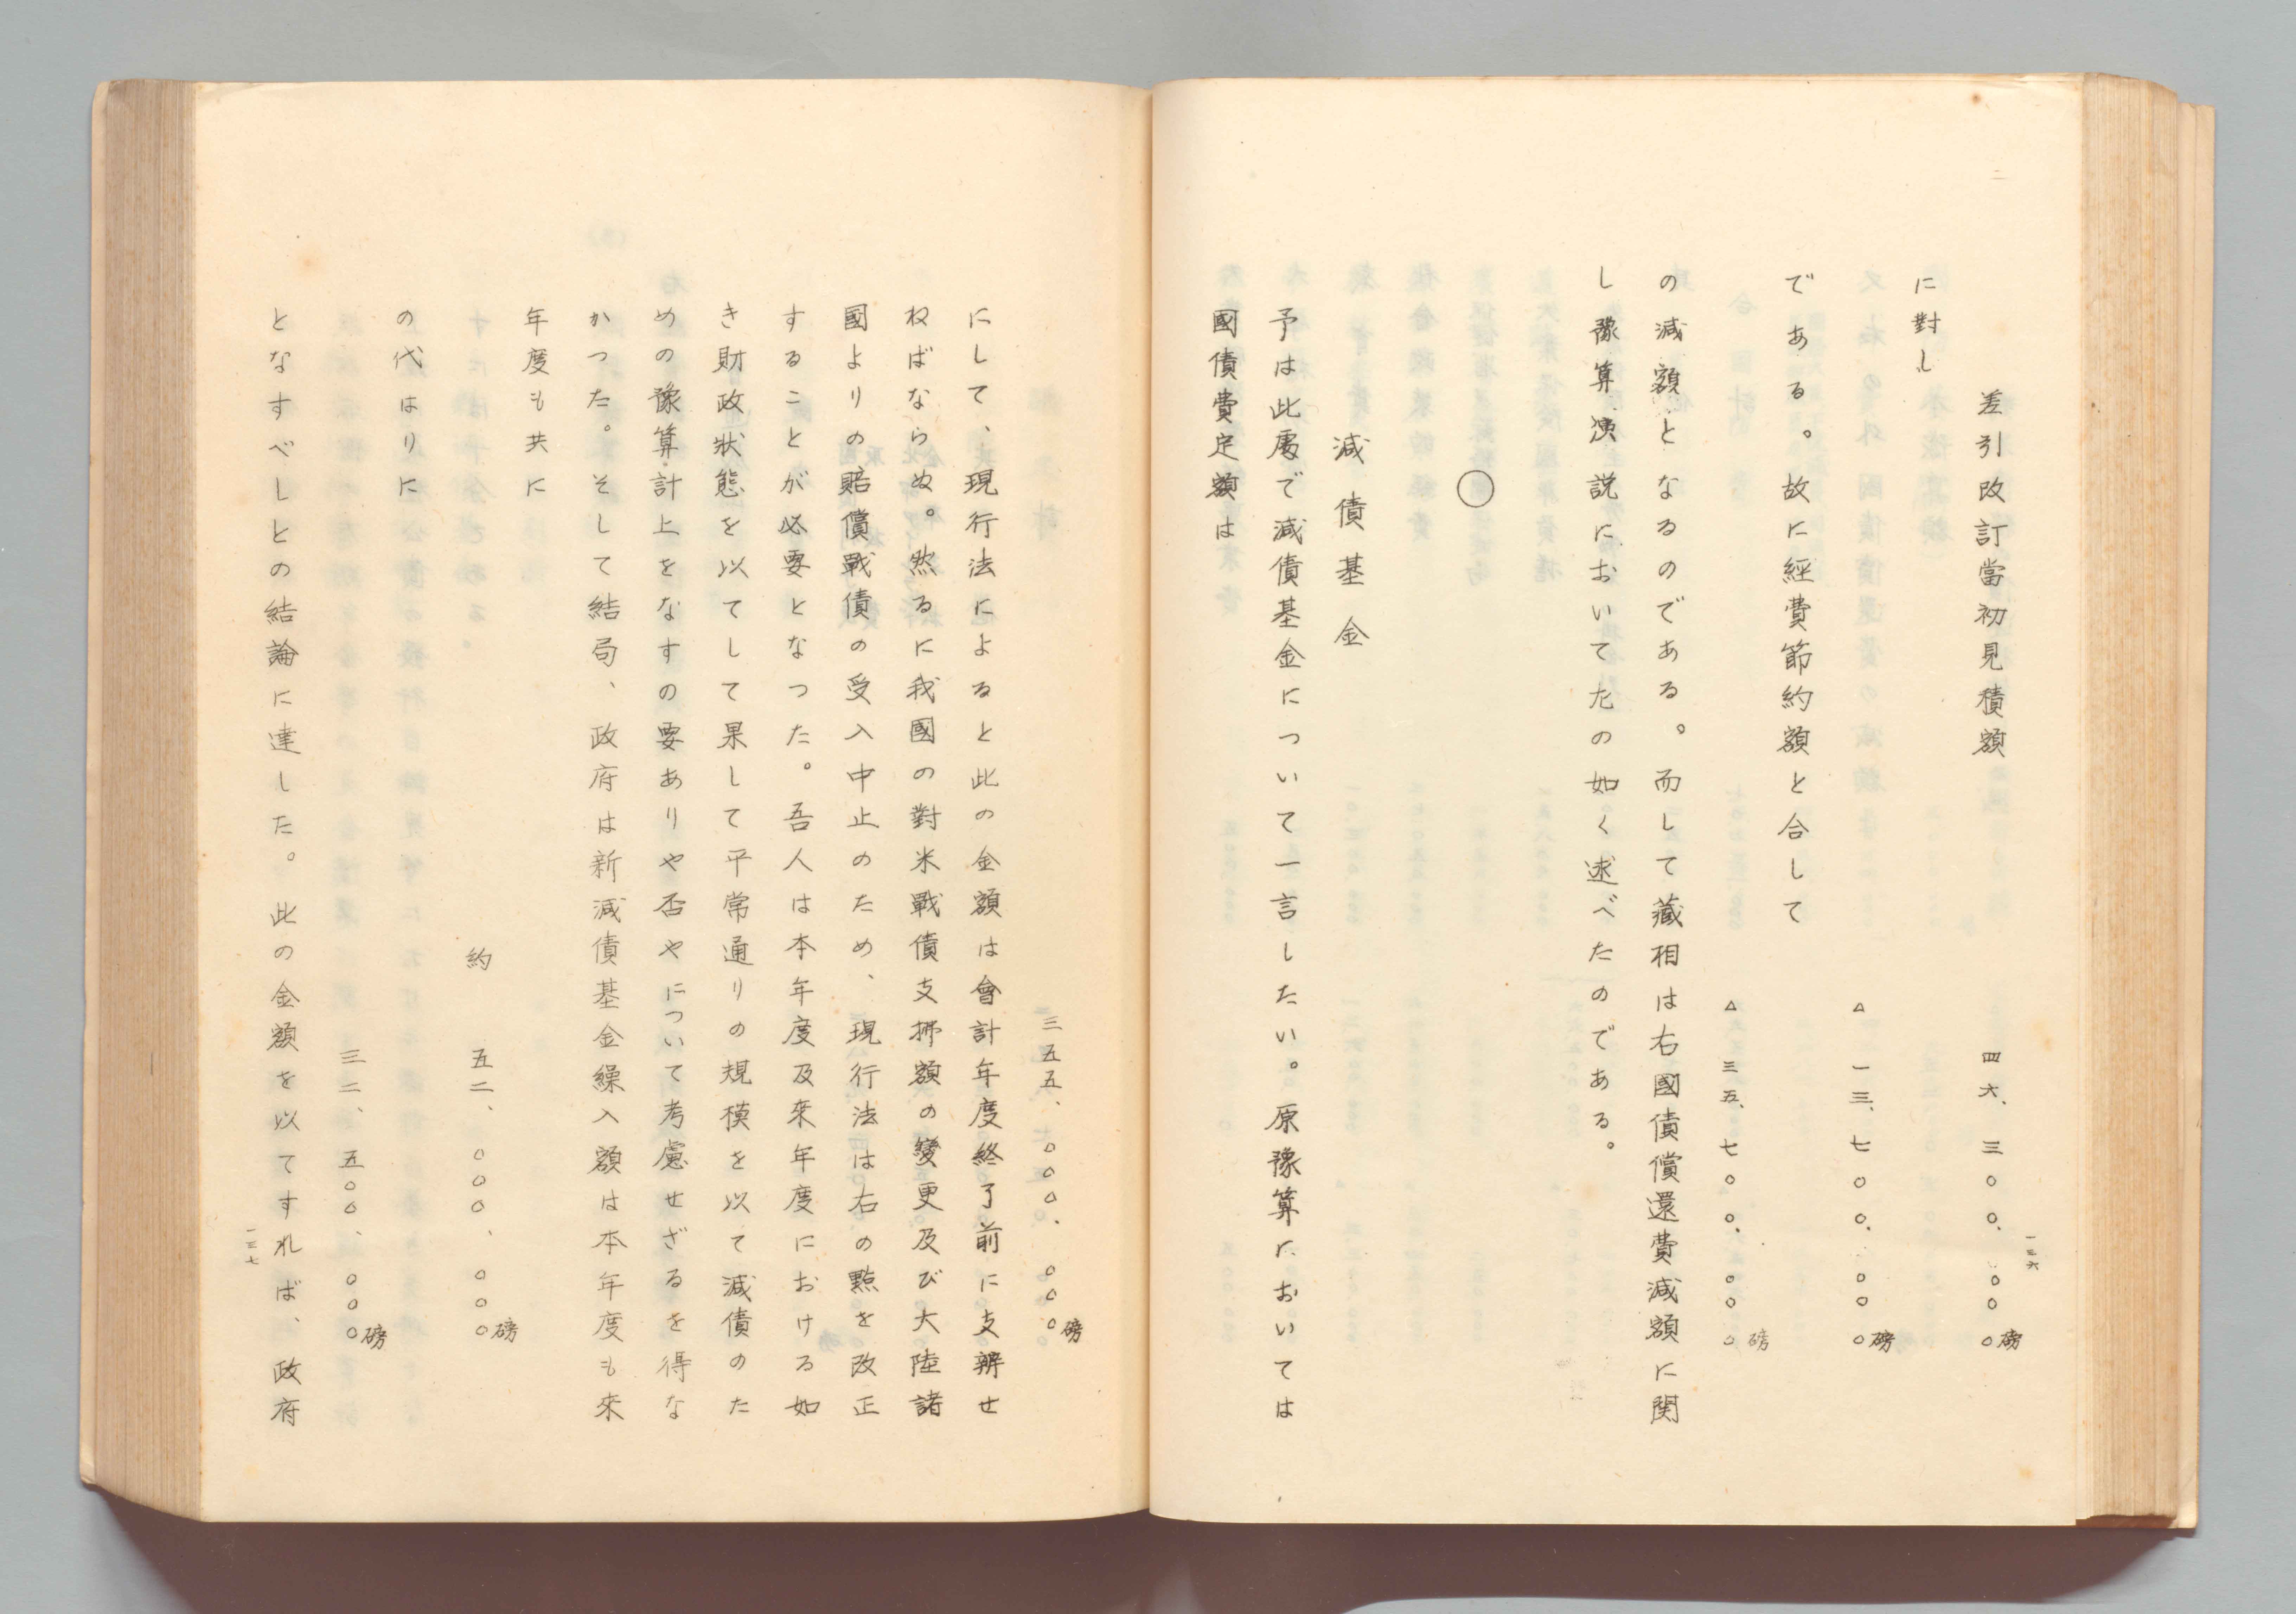 差引改訂當初見積額 四六、三〇〇、〇〇〇磅
に對し
△一三、七〇〇、〇〇〇磅
である。故に經費節約額と合して
△三五、七〇〇、〇〇〇磅
の減額となるのである。而して藏相は右國債償還費減額に関
し豫算演説においてたの如く述べたのである。
○
減債基金
予は此處で減債基金について一言したい。原豫算においては
國債費定額は
一三六
三五五、〇〇〇、〇〇〇磅
にして、現行法によると此の金額は會計年度終了前に支辨せ
ねばならぬ。然るに我國の對米戰債支拂額の變更及び大陸諸
國よりの賠償戰債の受入中止のため、現行法は右の點を改正
することが必要となつた。吾人は本年度及來年度における如
き財政狀態を以てして果して平常通りの規模を以て減債のた
めの豫算計上をなすの要ありや否やについて考慮せざるを得な
かつた。そして結局、政府は新減債基金繰入額は本年度も來
年度も共に
約 五二、〇〇〇、〇〇〇磅
の代はりに
三二、五〇〇、〇〇〇磅
となすべしとの結論に達した。此の金額を以てすれば、政府
一三七